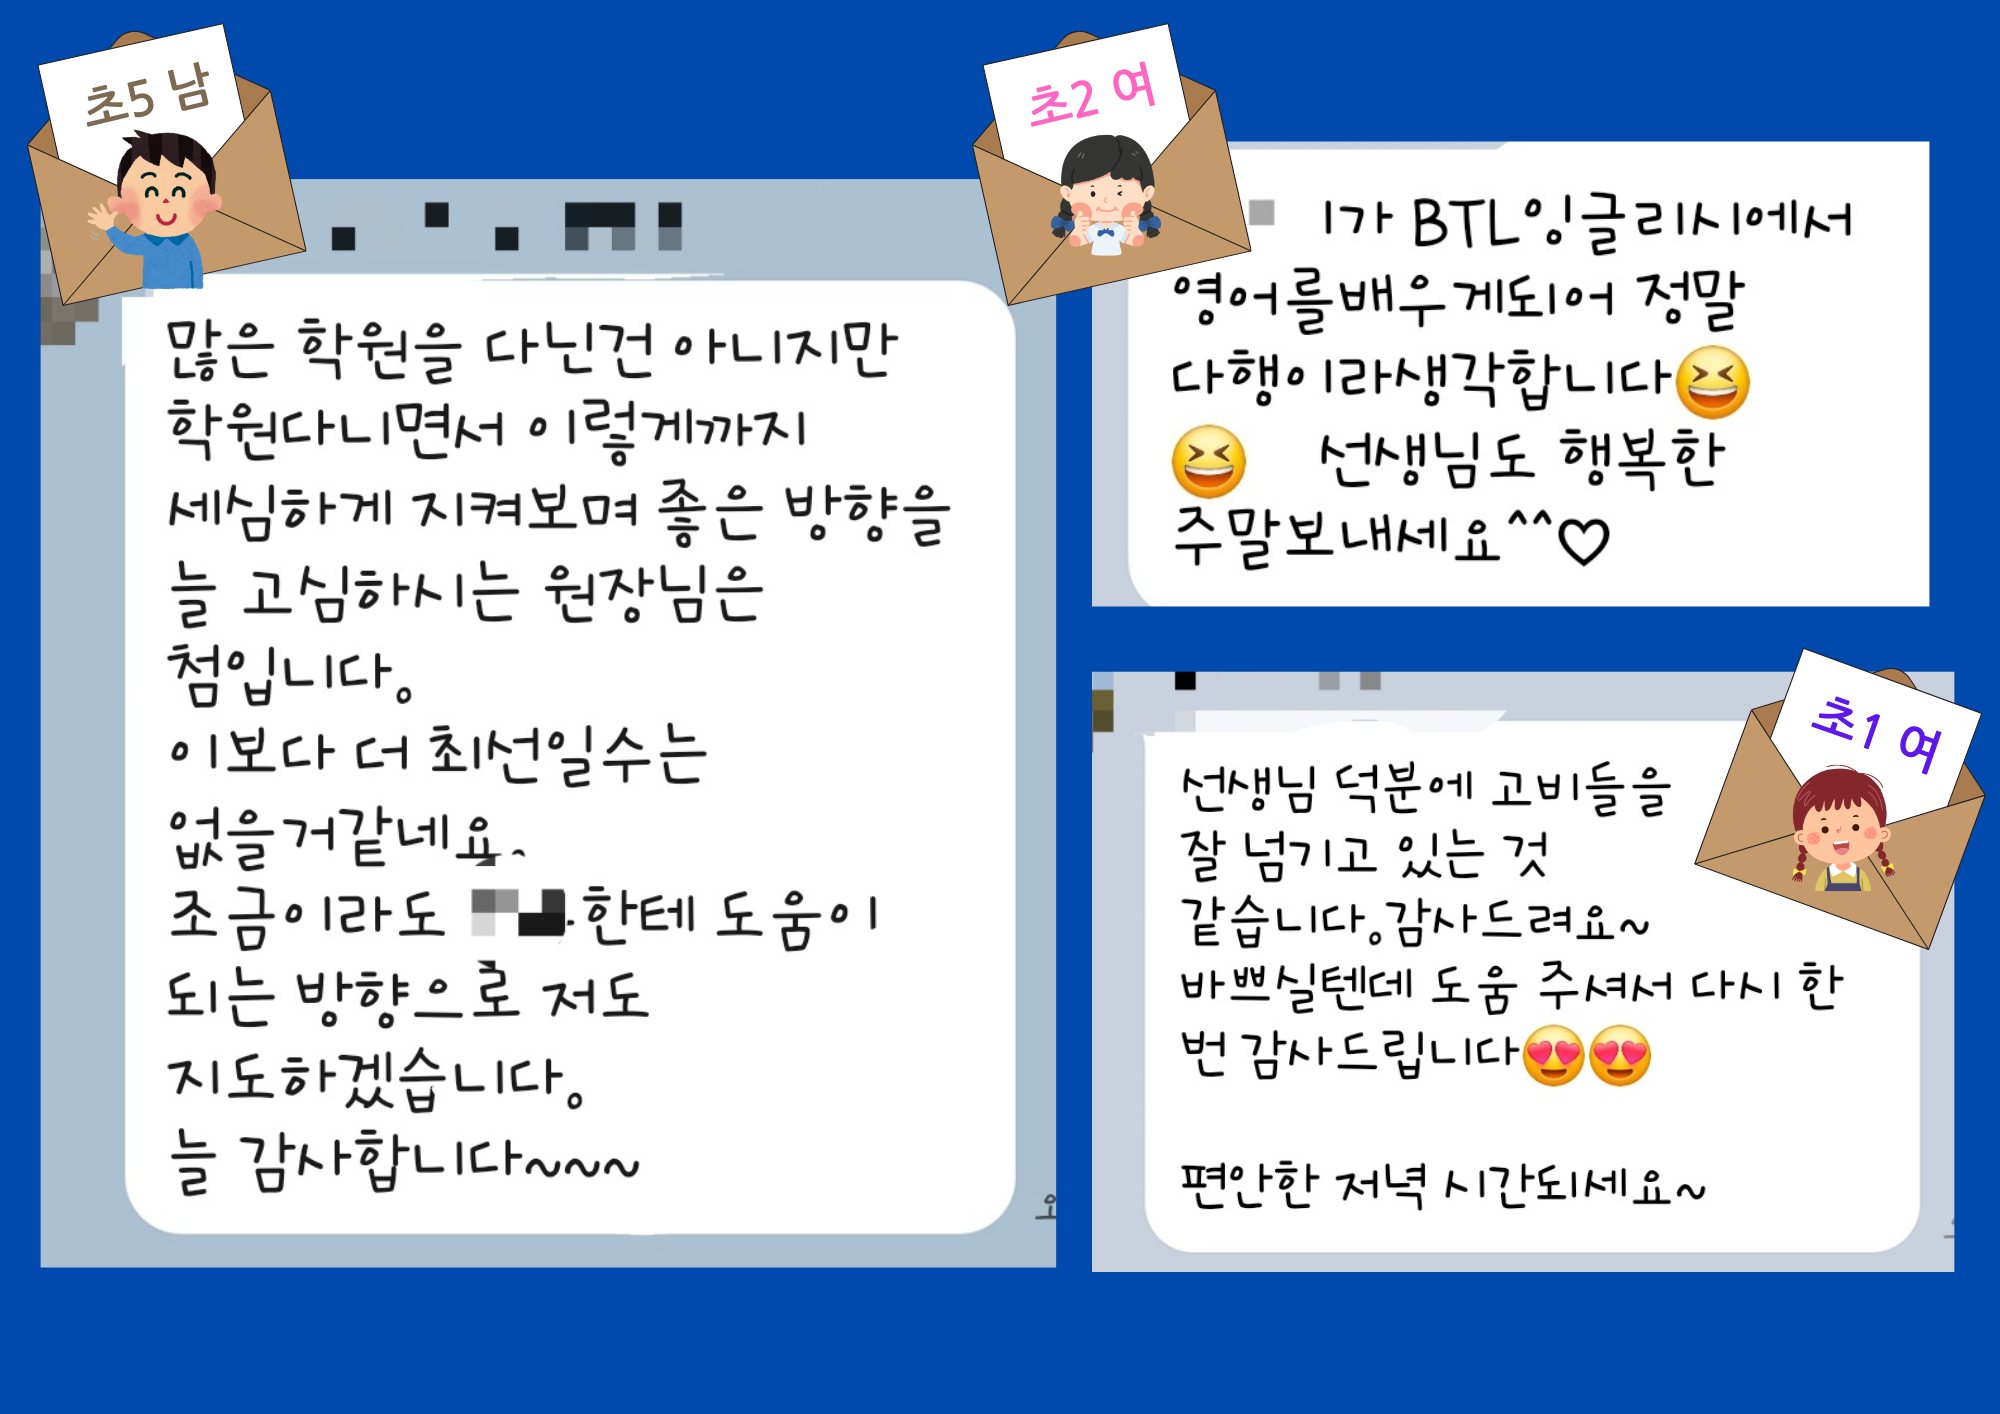 초5 남
많은 학원을 다닌건 아니지만
학원다니면서 이렇게까지
세심하게 지켜보며 좋은 방향을
늘 고심하시는 원장님은
첨입니다.
이보다 더 최선일수는
없을거같네요
조금이라도 한테 도움이
되는 방향으로 저도
지도하겠습니다.
늘 감사합니다~~~
초2 여
가 BTL잉글리시에서
영어를배우게되어 정말
다행이라생각합니다😆
😆 선생님도 행복한
주말보내세요^^♡
초1 여
선생님 덕분에 고비들을
잘 넘기고 있는 것
같습니다.감사드려요~
바쁘실텐데 도움 주셔서 다시 한
번 감사드립니다😍😍
편안한 저녁 시간되세요~